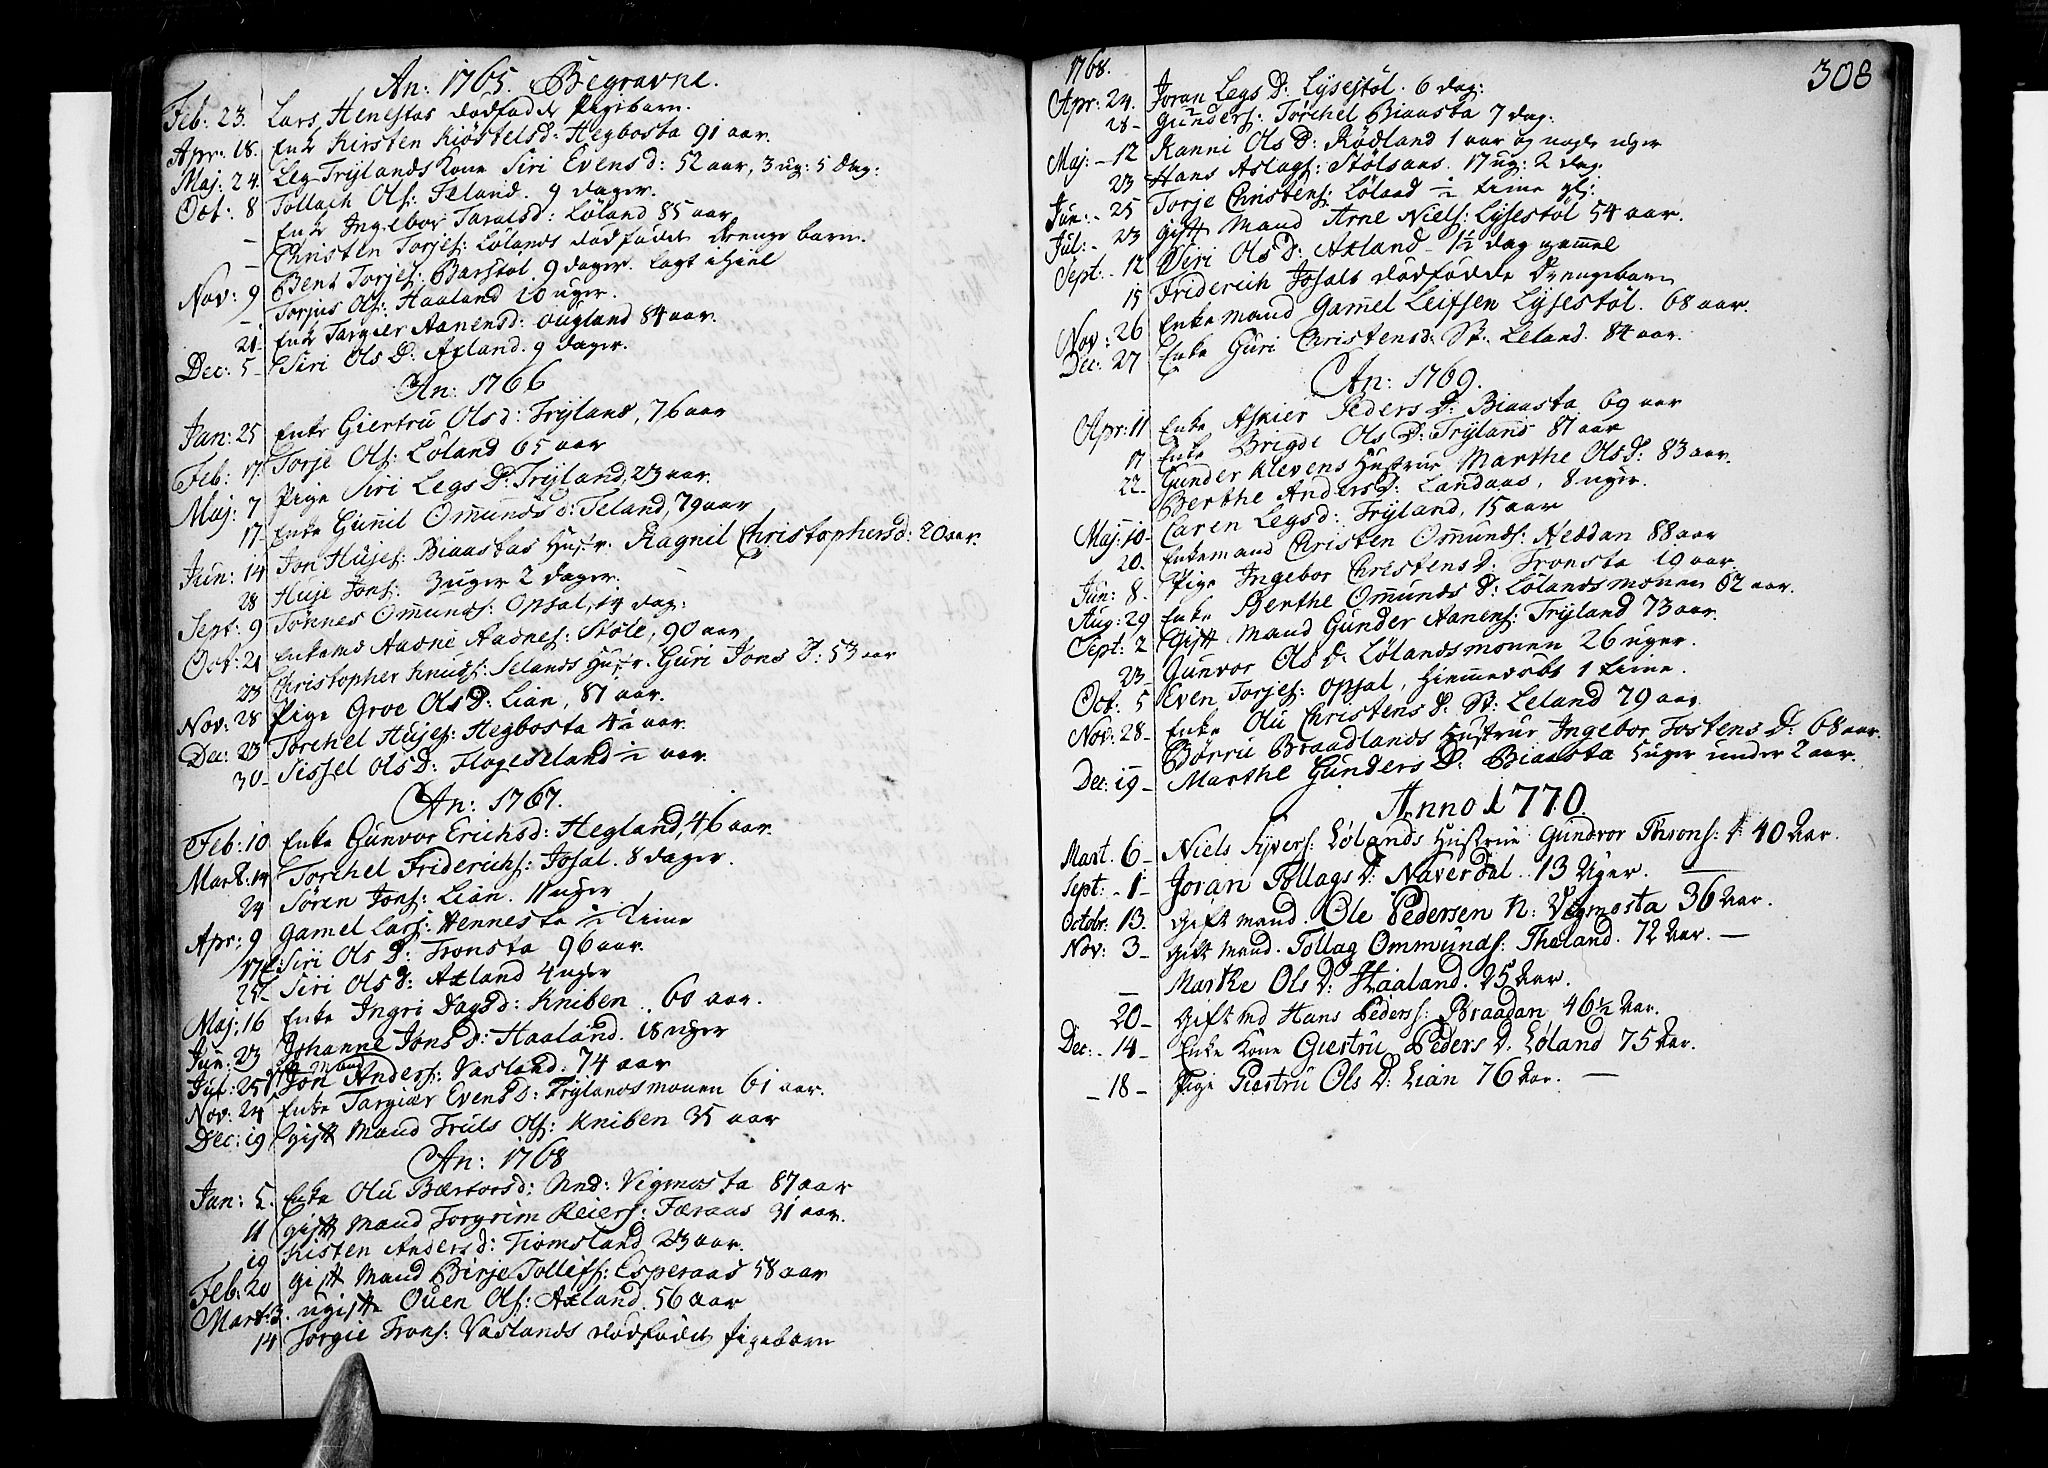 An: 1765. Begravne.
Feb: 23. Lars Henestas dødfødde Pigebarn.
Apr: 18. Enke Kirsten Kiøstelsd: Hegbosta 91 aar.
Maj: 24. Leg Trylands Kone Siri Evensd: 52 aar, 3 ug: 5 Dag:
Oct: 8 Tollach Ols: Teland. 9 dager.
- Enke Ingebor Taralsd: Løland 85 aar
- Christen Torjes: Lølands dødfødet drenge barn.
Nov: 9 Bent Torjes: Barstøl. 9 dager. lagt ihiel
- Torjus Ols: Haaland 16 uger.
21. Enke Targier Aanensd: Ougland 84 aar.
Dec: 5 - Siri Ols D: Axland. 9 dager.
An: 1766
Jan: 25 Enke Giertru Olsd: Tryland, 76 aar
Feb: 17. Torje Ols: Løland 65 aar
Maj: 7 Pige Siri Legs D: Tryland, 23 aar.
17. Enke Gunnil Ommundsd: Teland, 79 aar
Jun: 14 Jon Hujes: Biaastas Hustr: Ragnil Christophersd: 20 aar.
28 Huje Jons: 3 uger 2 dager.
Sept: 9 Tønnes Ommunds: Opsal, 14 dag:
Oct: 21 Enkemd Aadne Aadnes: Støle, 90 aar
23 Christopher Knuds: Selands Hustr. Guri Jons D: 53 aar
Nov: 28 Pige Groe Ols D: Lian, 81 aar.
Dec: 23 Torchel Hujes: Hegbosta 4½ aar.
30 - Sissel Ols D: Flageseland ½ aar.
An: 1767.
Feb: 10 Enke Gunvor Erichsd: Hegland, 46 aar.
Mart: 14 Torchel Friderichs: Josal. 8 dager.
24 Søren Jons: Lian. 11 uger
Apr: 9 Gamel Lars: Hennesta ½ time
17 Siri Ols D: Tronsta 96 aar.
25 - Siri Ols D: Axland 4 uger
Maj: 16 Enke Ingri Dagsd: Kniben. 60 aar.
Jun: 23 Johanne Jons D: Haaland. 18 uger
Jul: 25 gift Mand Jon Anders: Vasland. 74 aar
Nov: 24 Enke Targier Evens D: Trylandsmonen 61 aar.
Dec: 19 gift Mand Truls Ols: Kniben 35 aar
An: 1768
Jan: 5. Enke Olu Bærtorsd: Vigmosta 87 aar
11 gift Mand Torgrim Reiers: Færaas 31 aar.
19 Kisten Andersd: Tiomsland 23 aar.
Feb: 20 gift Mand Børje Tollefs: Esperaas 58 aar
Mart: 3. ugifte Ouen Ols: Axland. 56 aar
14 Torgie Trons: Vaslands dødfødet Pigebarn
308
1768.
Apr: 24. Joran Legs D: Lysestøl. 6 dag:
28 - Gunders: Torchel Biaasta 7 dag:
Maj: - 12 Ranni Ols D: Rødland 1 aar og nogle uger
23 Hans Aslags: Stølsaas. 17 ug: 2 dag:
Jun: - 25 Torje Christens: Løland ½ time gl:
Jul: - 23 gift Mand Arne Niels: Lysestøl 54 aar.
Sept: - 12 Siri Ols D: Axland - 1½ dag gamel
15 Friderich Josals dødfødde Drengebarn
Nov: 26 Enkemand Gamel Leifsen Lysestøl. 68 aar.
Dec: 27 Enke Guri Christensd: St: Leland. 84 aar.
An: 1769.
Apr: 11 Enke Askier Peders D: Biaasta 69 aar
17 Enke Brigde Ols D: Tryland 81 aar
22 - Gunder Klevens Hustrue Marthe Olsd: 83 aar.
Berthe Anders D: Landaas, 8 uger.
Maj: 10 - Caren Legsd: Tryland, 15 aar
20. Enkemand Christen Ommunds: Neddan 88 aar
Jun: 8. Pige Ingebor Christensd: Tronsta 19 aar
Aug: 29 Enke Berthe Ommunds D: Lølandsmonen 62 aar.
Sept: 2 Gift Mand Gunder Aanens: Tryland 73 aar.
23 - Gunvor Ols D: Lølandsmonen 26 uger.
Oct: 5 Even Torjes: Opsal, Hiemmedøbt 1 time.
Nov: 28 - Enke Olu Christens D: St: Leland 79 aar
Børru Braadlands Hustrue Ingebor Tostens D: 68 aar.
Dec: 19 - Marthe Gunders D: Biaasta 5 uger under 2 aar.
Anno 1770
Mart. 6 - Niels Syvers: Lølands Hustrue Gundvor Throns: D 40 Aar.
Sept: - 1 - Joran Tollags D: Naverdal. 13 Uger.
Octobr: 13. Gift mand. Ole Pedersen N: Vigmosta 36 Aar.
Nov: 3 - Gift Mand. Tollag Ommunds: Theland. 72 Aar. -
- Marthe Ols D: Haaland. 25 Aar.
20 - Gift md Hans Peders: Braadan 46½ Aar.
Dec: - 14 - Enke Kone Giertru Peders D: Løland 75 Aar.
- 18 - Pige Giertru Ols D: Lian 76 Aar. -